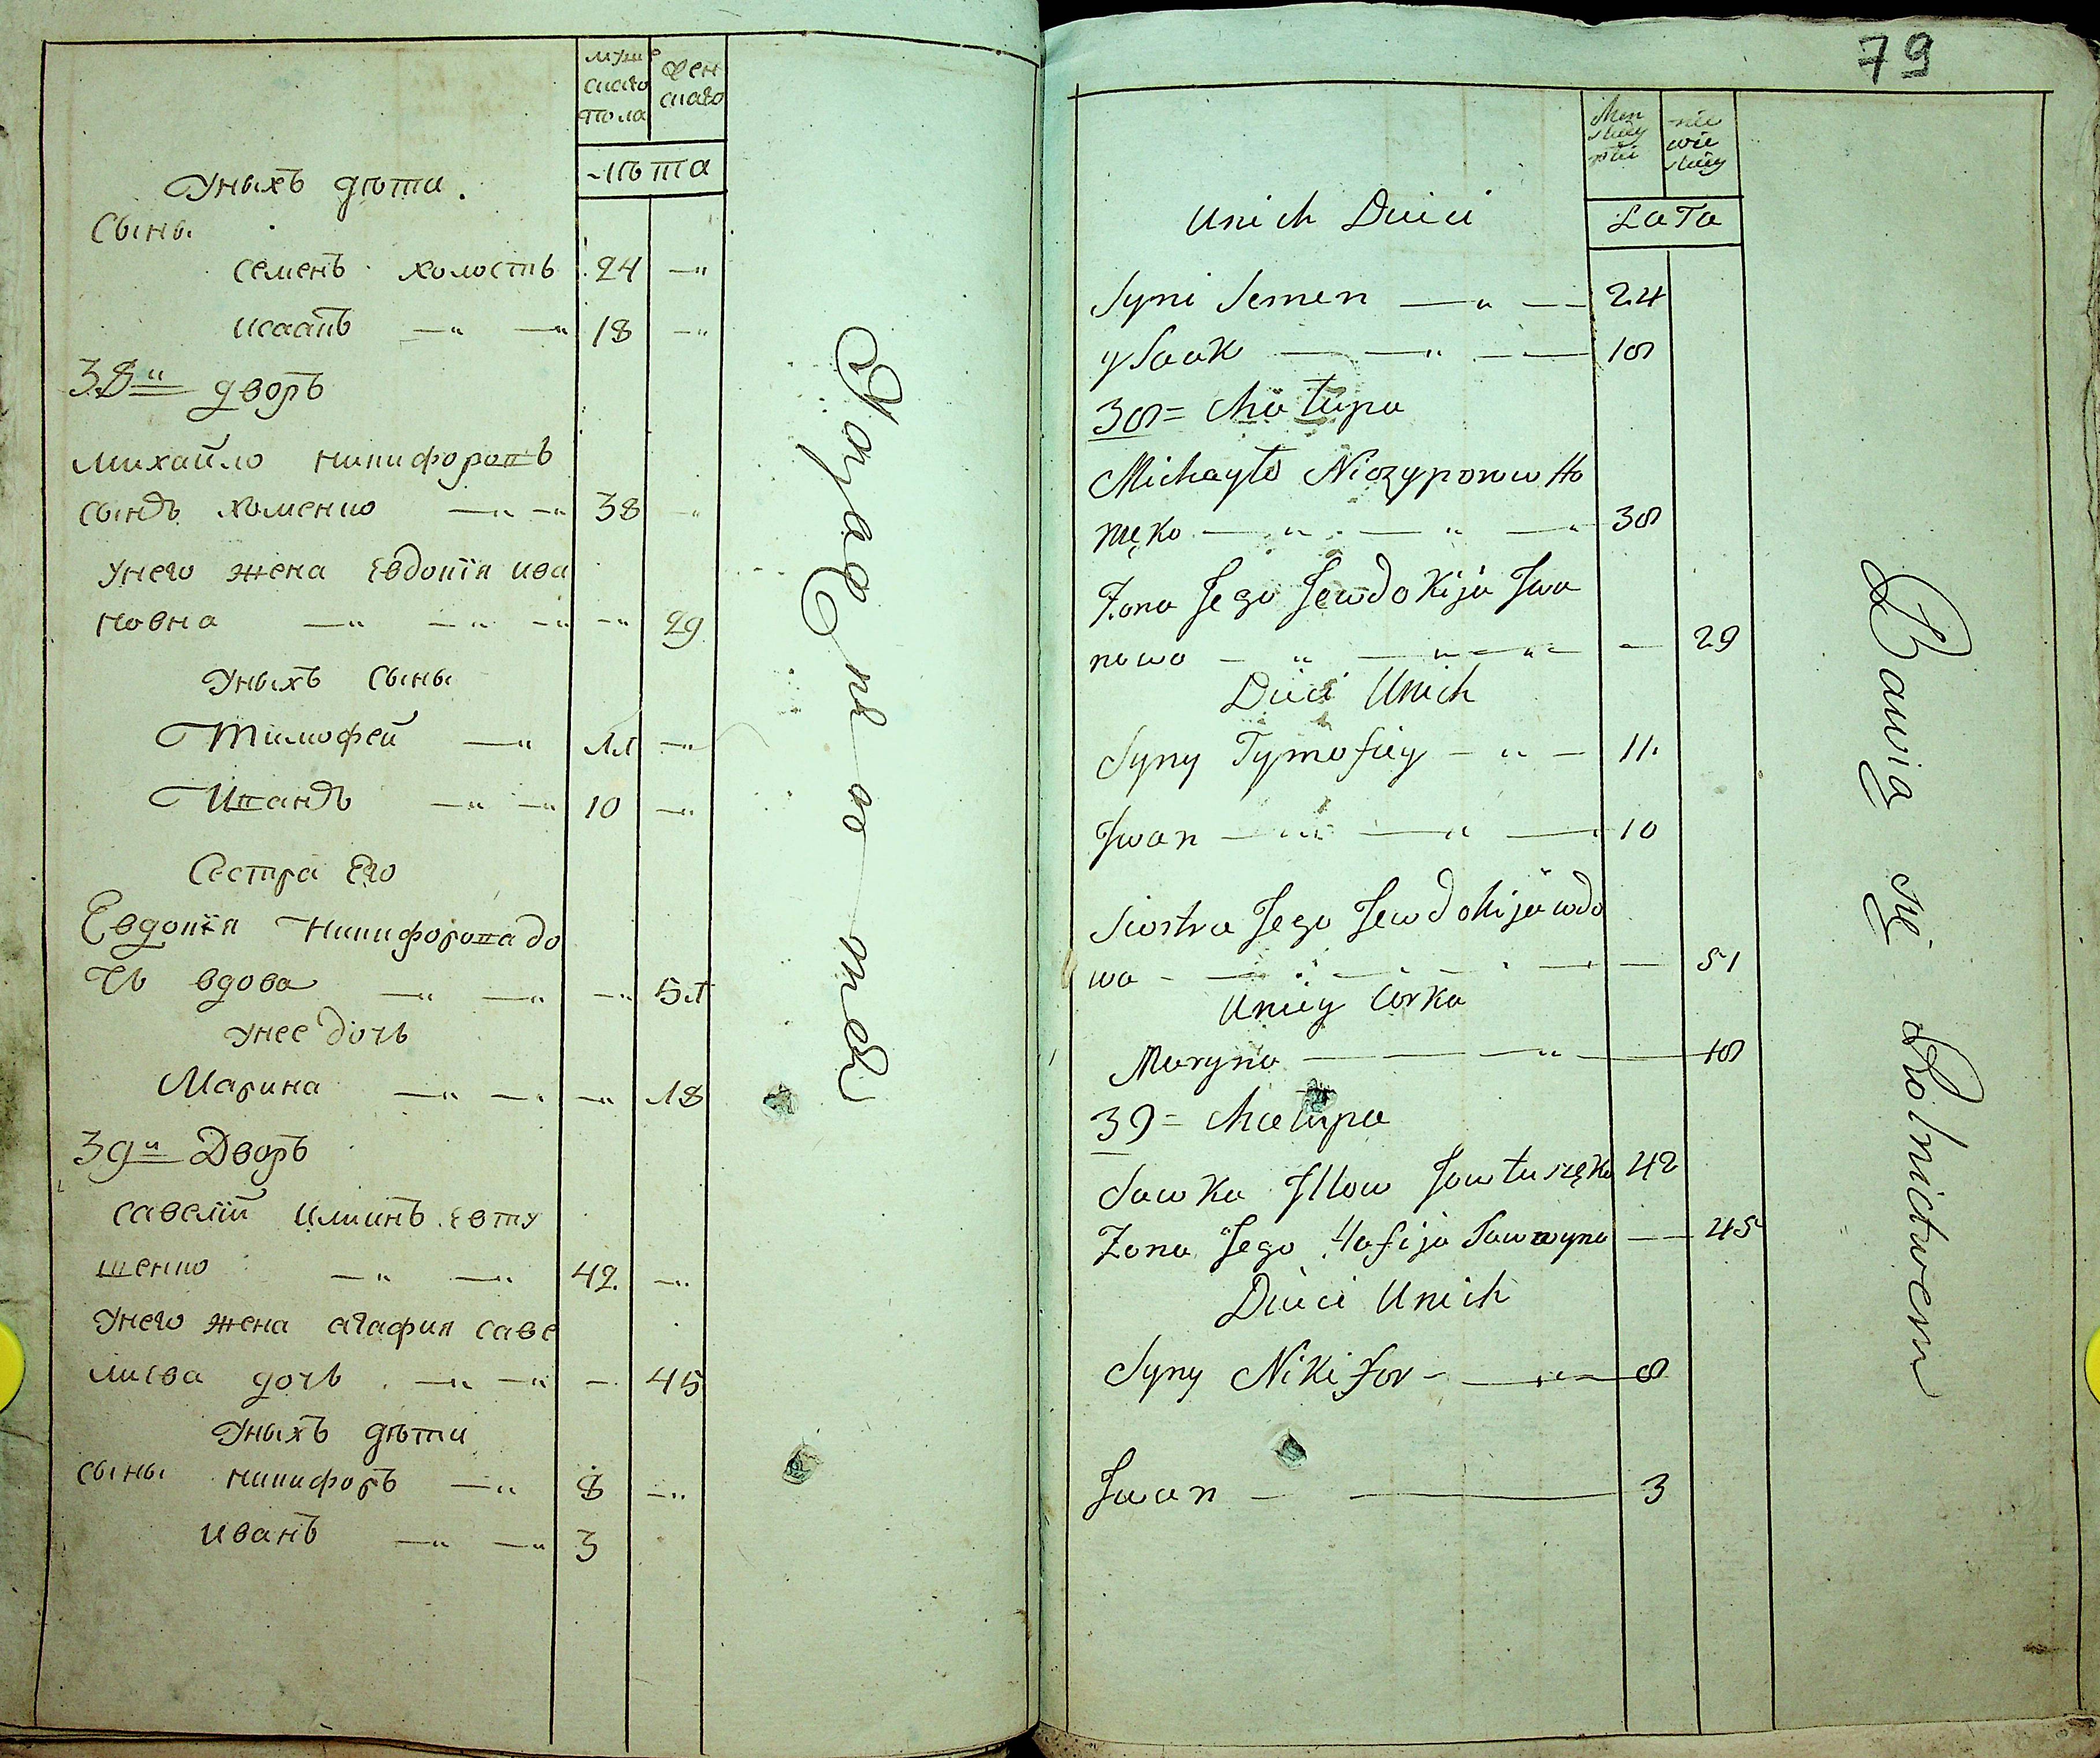 муж
скаго
пола
жен
скаго
лѣта
Уныхъ дѣти.
Сыны
семенъ холостъ 24 —"
исаакъ —" —" 18 —"
38й дворъ
михайло никифоровъ
сынъ хоменко —" —" 38 —"
унего жена евдокїя ива
новна —" —" —" —" 29
Уныхъ сыны
Тимофей —" 11 —"
Иванъ —" —" 10 —"
Сестра Его
Евдокїя Никифорова до
чь вдова —" —" —" 51
унее дочь
Марина —" —" —" 18
39й Дворъ
савелїй илиинъ евту
шенко —" —" 42 —"
Унего жена агафия саве
лиева дочь —" —" — 45
Уныхъ дѣти
сыны никифоръ —" 8 —"
иванъ —" —" 3
79
Men
skiey
płci
nie
wie
skiey
LaTa
Unich Dzieci
Syni Semen — " — 24
ySaak — — " — — 18
38 = Chałupa
Michayło Niczyporow Ho
męko — " — " — " 38
Żona Jego Jewdokija Iwa
nowa — " — " — " — — 29
Dzieci Unich
Syny Tymofiey — " — 11.
Iwan — " — " — 10
Siostra Jego Jewdokija wdo
wa — — — — — — 51
Uniey Corka
Maryna — — — " — 18
39 = Chałupa
Sawka Illow Jowtuszęko 42
Żona Jego Hafija Sawwyna — — 45
Dzieci Unich
Syny Nikifor — — " — 8
Iwan — — 3
Bawią się Rolnictwem